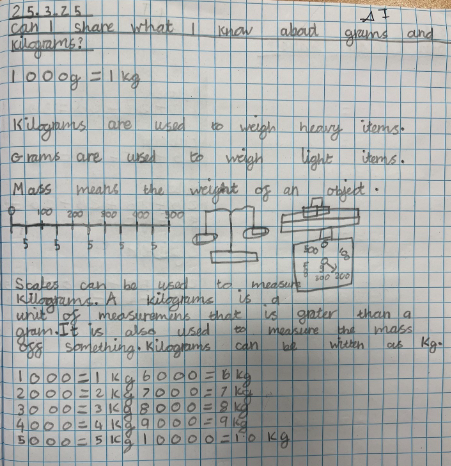 25.3.25
AI
can I share what I know abad grams and
kilograms?
1000g = 1kg
Kilograms are used to weigh heavy items.
Grams are used to weigh light items.
Mass means the weight of an object.
0 100 200 300 400 500
5 5 5 5 5
500 kg
300 200
Scales can be used to measure
kilograms. A kilograms is a
unit of measuremens that is grater than a
gram. It is also used to measure the mass
off something. Kilograms can be writen as kg.
1000 = 1 kg 6000 = 6 kg
2000 = 2 kg 7000 = 7 kg
3000 = 3 kg 8000 = 8 kg
4000 = 4 kg 9000 = 9 kg
5000 = 5 kg 10000 = 10 kg